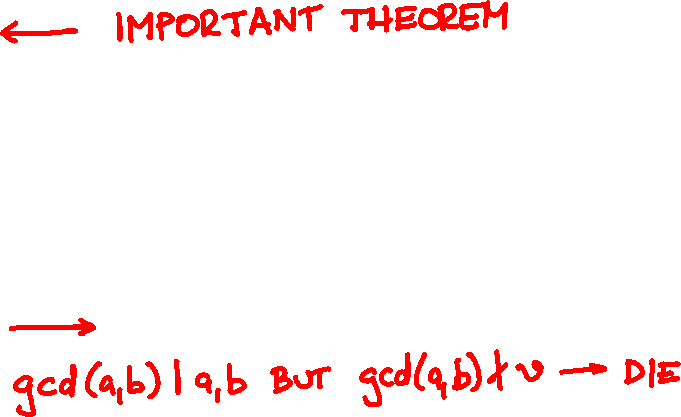 ← IMPORTANT THEOREM
→
gcd(a,b) | a,b BUT gcd(a,b) ∤ v → DIE